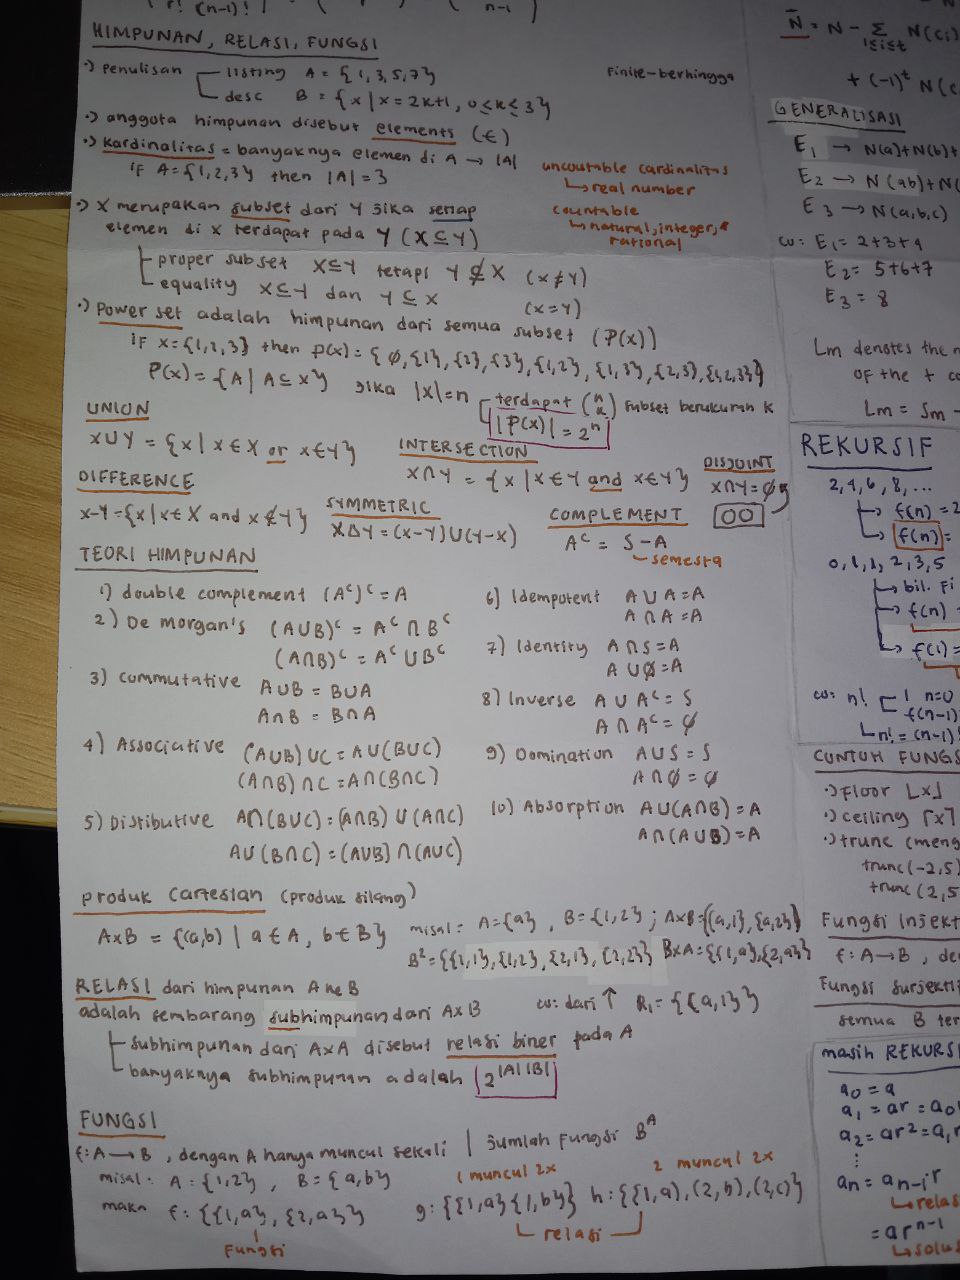 r! (n-1)!
n-1
HIMPUNAN, RELASI, FUNGSI
·) penulisan listing A = {1, 3, 5, 7}
desc B = {x | x = 2k+1, 0≤k≤3}
Finite-berhingga
·) anggota himpunan disebut elements (∈)
·) kardinalitas = banyaknya elemen di A → |A|
if A={1,2,3} then |A| = 3
uncoutable cardinalitas
↳ real number
countable
↳ natural, integer, &
rational
·) X merupakan subset dari Y jika setiap
elemen di X terdapat pada Y (X ⊆ Y)
proper subset X⊆Y tetapi Y ⊈ X (X ≠ Y)
equality X⊆Y dan Y ⊆ X (X = Y)
·) Power set adalah himpunan dari semua subset (P(x))
if x = {1,2,3} then p(x) = { ∅, {1}, {2}, {3}, {1,2}, {1,3}, {2,3}, {1,2,3}}
P(x) = {A | A⊆X} jika |x| = n terdapat (n k) subset berukuran k
|P(x)| = 2ⁿ
UNION
X∪Y = {x | x∈X or x∈Y}
INTERSECTION
X∩Y = {x | x∈Y and x∈Y}
DISJOINT
X∩Y = ∅
DIFFERENCE
X-Y = {x | x∈X and x∉Y}
SYMMETRIC
X∆Y = (X-Y)∪(Y-X)
COMPLEMENT
Aᶜ = S - A
semesta
TEORI HIMPUNAN
1) double complement (Aᶜ)ᶜ = A
2) De morgan's (A∪B)ᶜ = Aᶜ ∩ Bᶜ
(A∩B)ᶜ = Aᶜ ∪ Bᶜ
3) commutative A∪B = B∪A
A∩B = B∩A
4) Associative (A∪B)∪C = A∪(B∪C)
(A∩B)∩C = A∩(B∩C)
5) Distibutive A∩(B∪C) = (A∩B) ∪ (A∩C)
A∪(B∩C) = (A∪B) ∩ (A∪C)
6) Idempotent A ∪ A = A
A ∩ A = A
7) Identity A ∩ S = A
A ∪ ∅ = A
8) Inverse A ∪ Aᶜ = S
A ∩ Aᶜ = ∅
9) Domination A ∪ S = S
A ∩ ∅ = ∅
10) Absorption A∪(A∩B) = A
A∩(A∪B) = A
produk Cartesian (produk silang)
AxB = {(a,b) | a∈A, b∈B}
misal: A = {a}, B = {1,2} ; AxB = {(a,1}, {a,2}}
B² = {{1,1}, {1,2}, {2,1}, {2,2}} BxA = {{1,a}, {2,a}}
RELASI dari himpunan A ke B
adalah sembarang subhimpunan dari AxB co: dari ↑ R₁ = {{a,1}}
subhimpunan dari AxA disebut relasi biner pada A
banyaknya subhimpunan adalah 2^|A||B|
FUNGSI
f: A → B, dengan A hanya muncul sekali | jumlah fungsi Bᴬ
misal: A = {1,2}, B = {a,b}
1 muncul 2x
2 muncul 2x
maka f: {{1,a}, {2,a}} g: {{1,a}{1,b}} h: {{1,a), (2,b), (2,c)}
Fungsi
relasi
N̄ = N - Σ N(ci)
1≤i≤t
+ (-1)ᵗ N(c
GENERALISASI
E₁ → N(a)+N(b)+
E₂ → N(ab)+N(
E₃ → N(a,b,c)
co: E₁ = 2+3+4
E₂ = 5+6+7
E₃ = 8
Lm denotes the
of the t co
Lm = Sm -
REKURSIF
2, 4, 6, 8, ...
f(n) = 2
f(n) =
0, 1, 1, 2, 3, 5
bil. Fi
f(n)
f(1) =
co: n! 1 n=0
f(n-1)
n! = (n-1)!
CONTOH FUNGS
·) floor ⌊x⌋
·) ceiling ⌈x⌉
·) trunc (meng
trunc(-2,5)
trunc(2,5
Fungsi Injekt
f: A→B, de
Fungsi surjekti
semua B ter
masih REKURS
a₀ = a
a₁ = ar = a₀
a₂ = ar² = a₁r
⋮
an = an-1·r
↳ relas
= arⁿ⁻¹
↳ solus